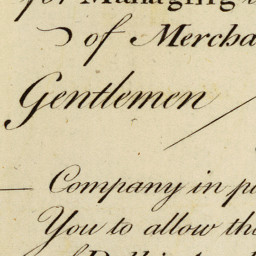 for Managing
of Mercha
Gentlemen
Company in p
You to allow th